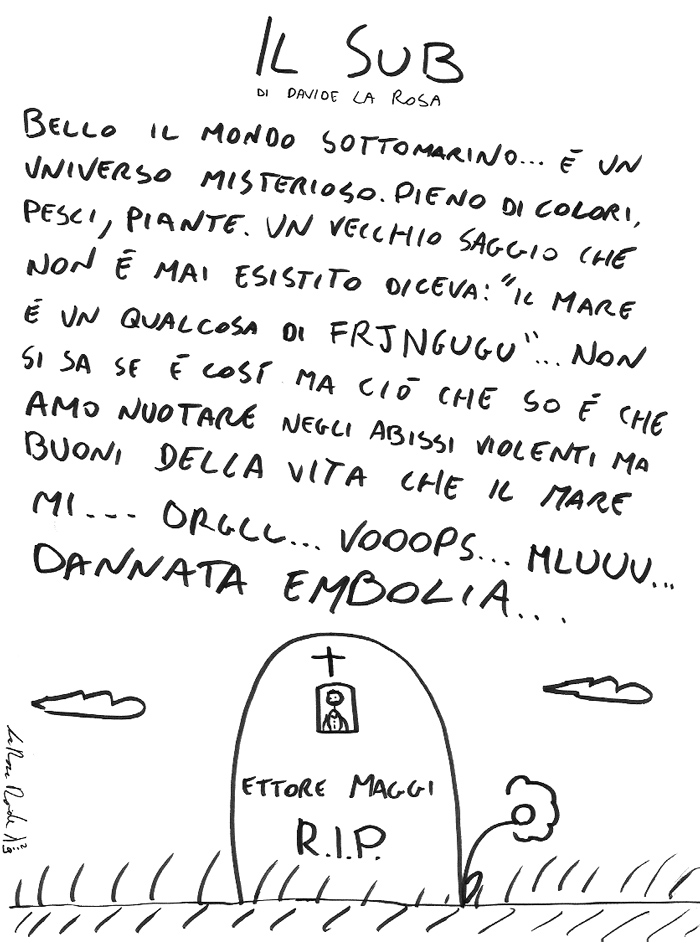 IL SUB
DI DAVIDE LA ROSA
BELLO IL MONDO SOTTOMARINO... É UN
UNIVERSO MISTERIOSO. PIENO DI COLORI,
PESCI, PIANTE. UN VECCHIO SAGGIO CHE
NON É MAI ESISTITO DICEVA: "IL MARE
É UN QUALCOSA DI FRJNGUGU"... NON
SI SA SE É COSÍ MA CIÓ CHE SO É CHE
AMO NUOTARE NEGLI ABISSI VIOLENTI MA
BUONI DELLA VITA CHE IL MARE
MI... ORGLL... VOOOPS... MLUUU...
DANNATA EMBOLIA...
ETTORE MAGGI
R.I.P.